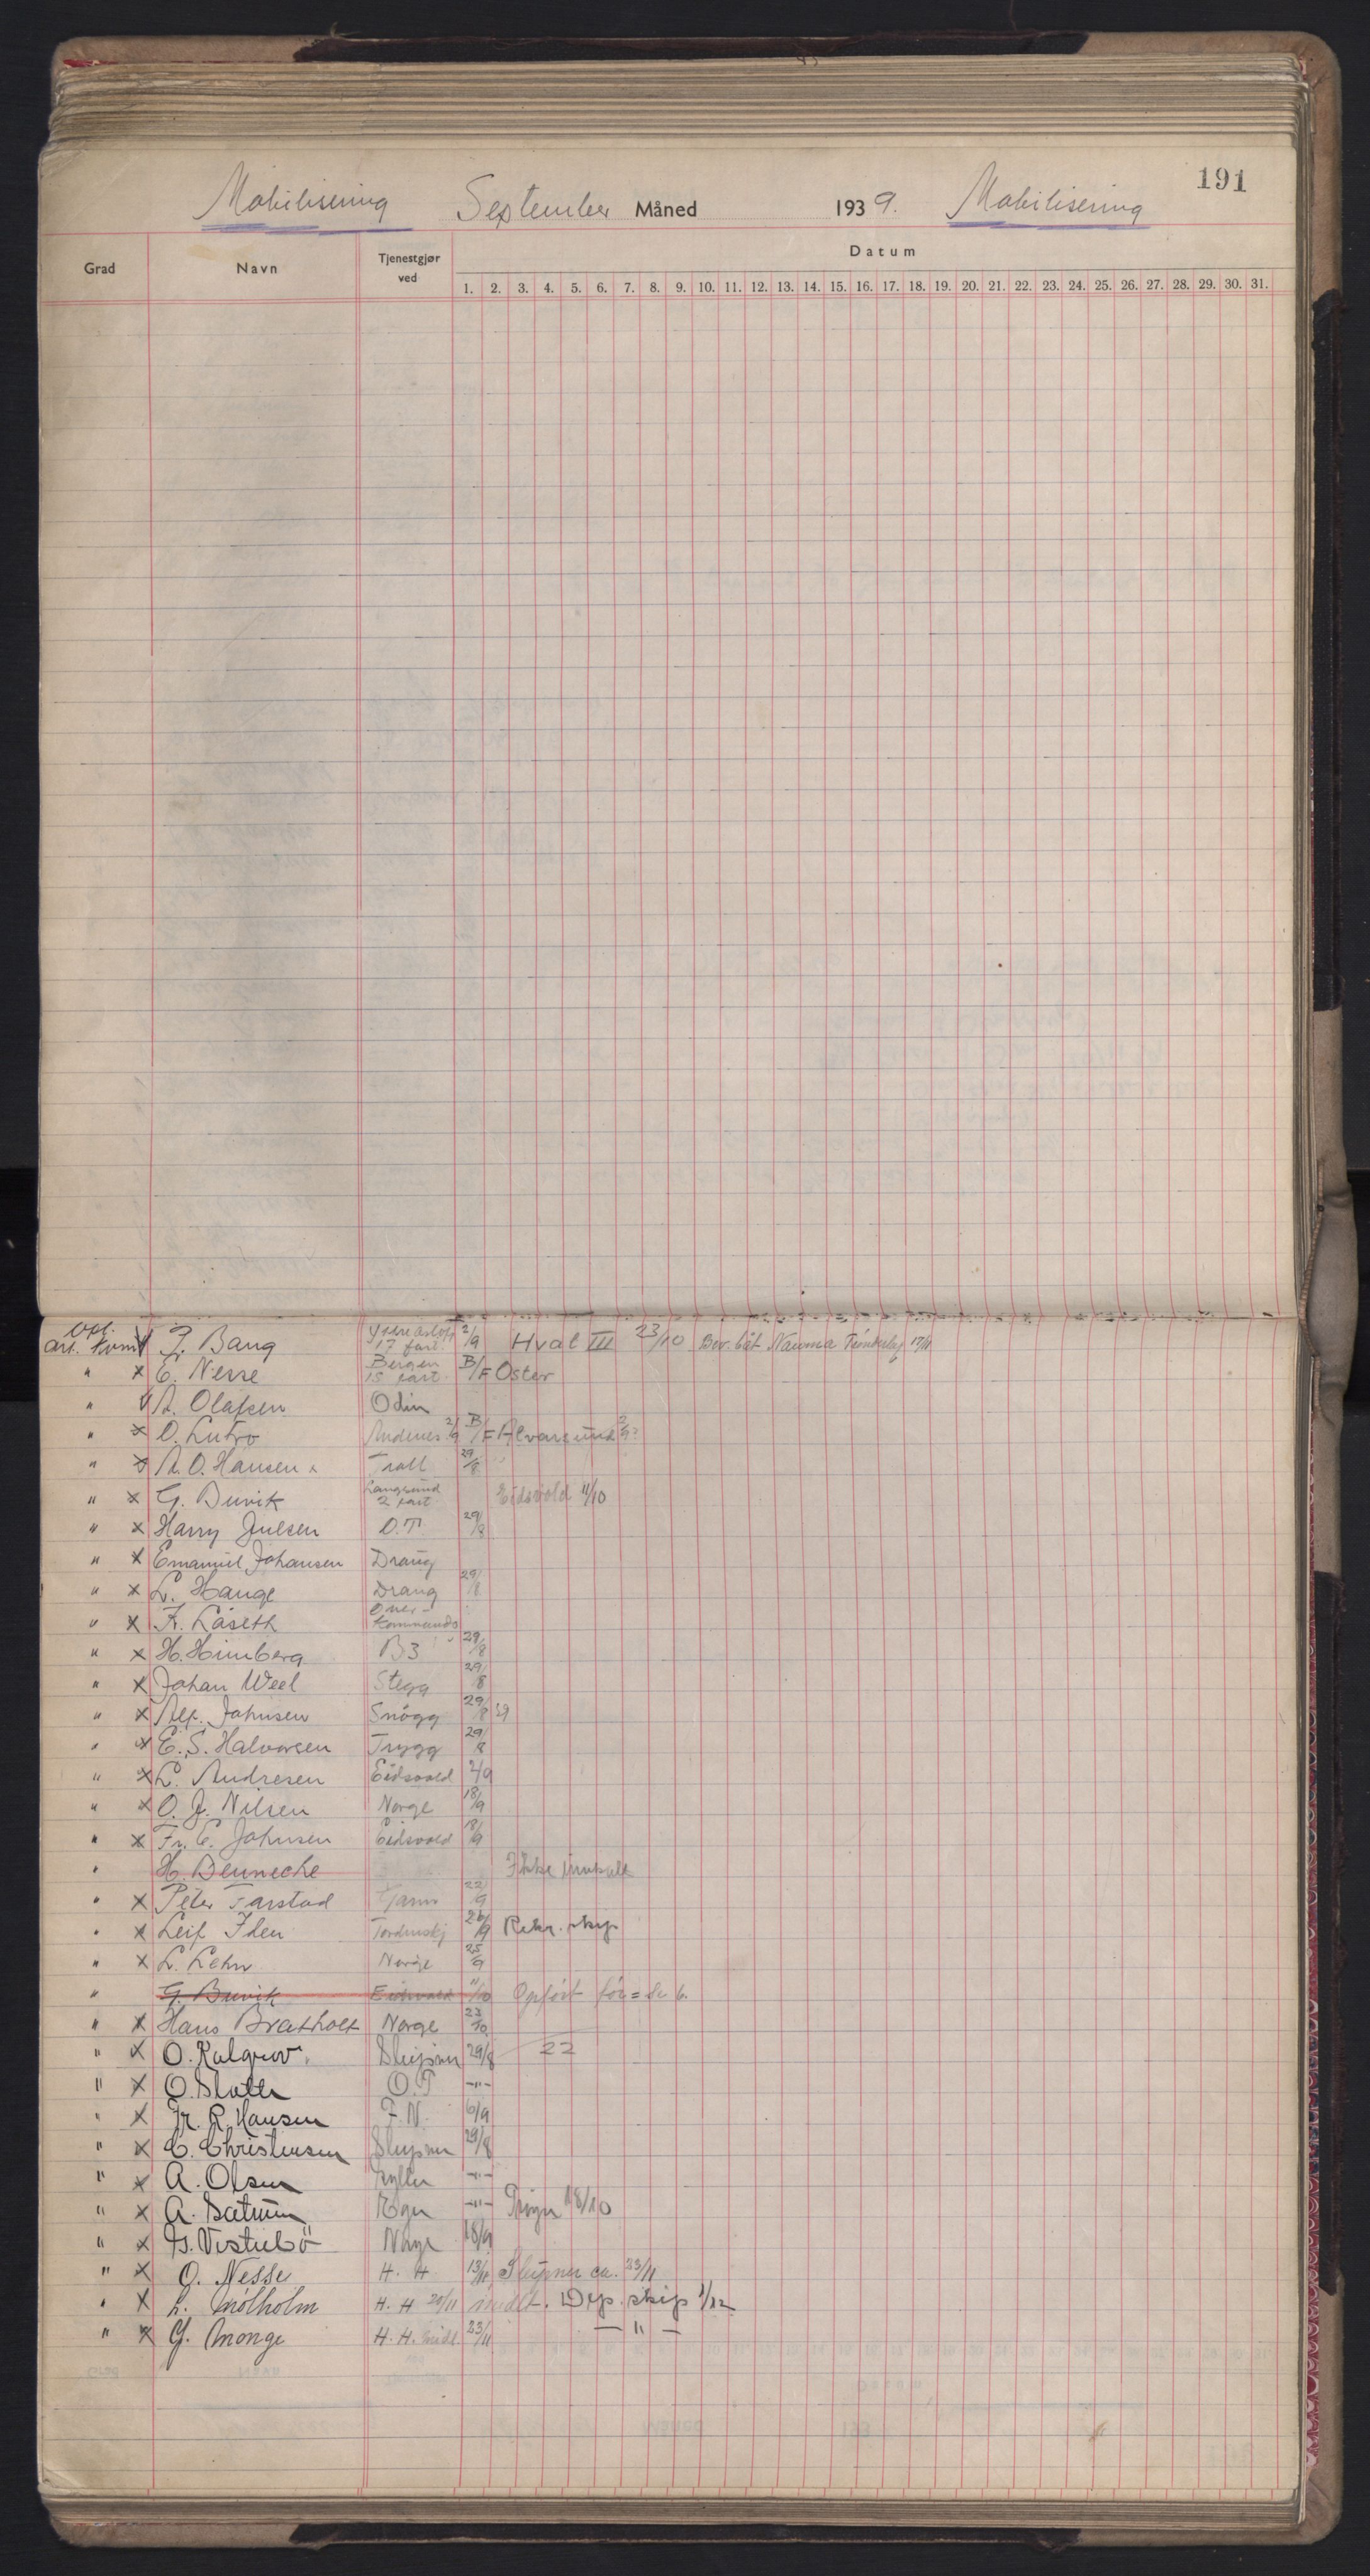 191
Mobilisering September Måned 1939. Mobilisering
Grad Navn Tjenestgjør ved Datum
1. 2. 3. 4. 5. 6. 7. 8. 9. 10. 11. 12. 13. 14. 15. 16. 17. 18. 19. 20. 21. 22. 23. 24. 25. 26. 27. 28. 29. 30. 31.
Bang 17 2/9 Hval III 23/10 Bev. båt Nauma 17/11
" x E. Nesse Bergen 15 B/F Oster
" A. Olafsen Odin
" x O. Lutro Andenes 2/9 B/F Alvarsund
" x A. O. Hansen Troll 29/8
" x G. Buvik Langesund 2 Eidsvold 11/10
" x Harry Julsen O.T. 29/8
" x Emanuel Johansen Draug
" x L. Hauge Draug 29/8
" x Fr. Låseth Over-kommando
" x H. Himberg B3 29/8
" x Johan Weel Stegg 29/8
" x Alf. Johnsen Snøgg 29/8
" x E. S. Halvorsen Trygg 29/8
" x L. Andresen Eidsvold 2/9
" x O. J. Nilsen Norge 18/9
" x Fr. E. Johnsen Eidsvold 18/9
" H. Bennecke Ikke innkalt
" x Peter Tarstad Garm 22/9
" x Leif Iden Tordenskj 26/9 Rekr. skip
" x L. Lehn Norge 25/9
" G. Buvik Eidsvold 11/10 Opført før =
" x Hans Bratholt Norge 23/10
" x O. Kalgrov Sleipner 29/8 22
" x O. Slatle O.T —"—
" x Fr. R. Hansen F. N. 6/9
" x C. Christensen Sleipner 29/8
" x A. Olsen Gyller —"—
" x A. Sætrum Æger —"— 18/10
" x G. Vestrebö Norge 18/9
" x O. Nesse H. H. 13/11 Sleipner ca. 23/11
" x L. Mölholm H. H 21/11 midl. Dep. skip 1/12
" x G. Monge H. H. midl 23/11 — " —